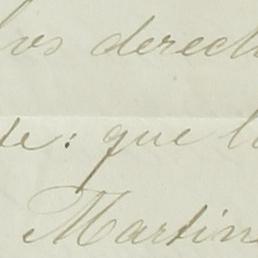 los derech
te: que l
Martin